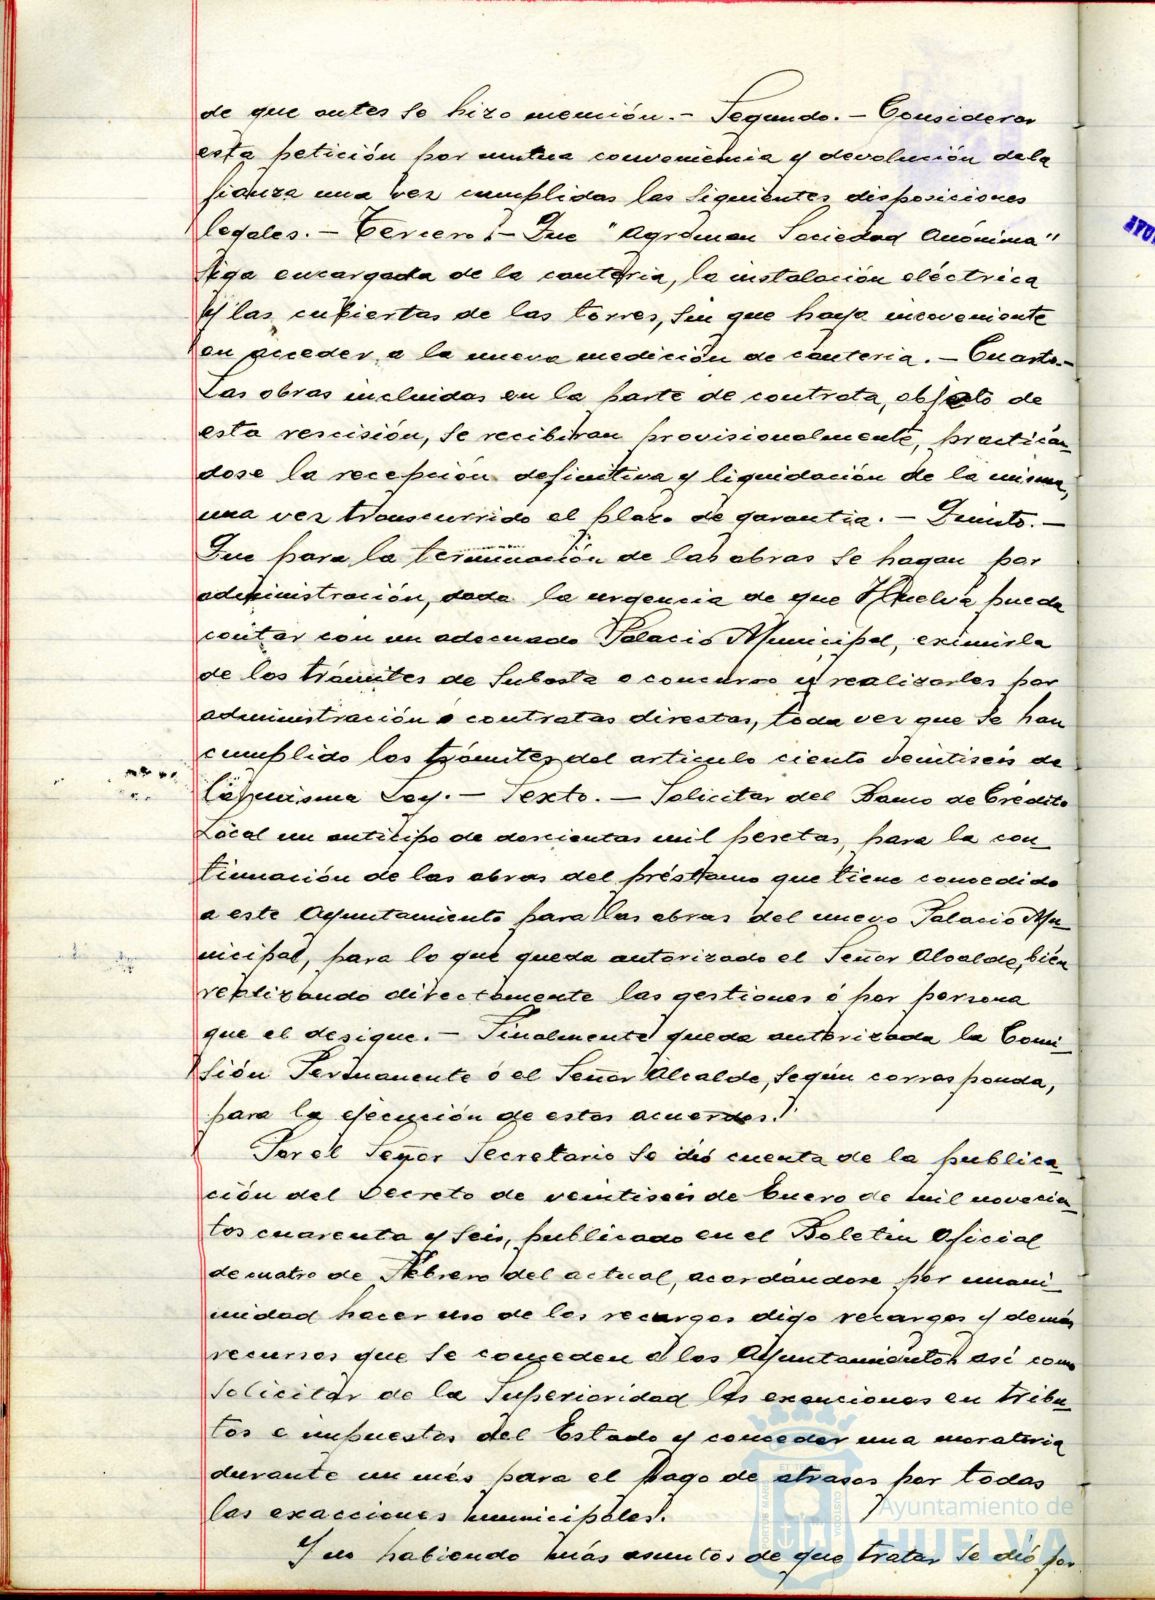 de que antes se hizo mención.- Segundo.- Considerar
esta petición por mutua conveniencia y devolución de la
fianza una vez cumplidas las siguientes disposiciones
legales.- Tercero.- Que "Agroman Sociedad Anónima"
siga encargada de la cantería, la instalación eléctrica
y las cubiertas de las torres, sin que haya inconveniente
en acceder a la nueva medición de cantería.- Cuarto.-
Las obras incluidas en la parte de contrata, objeto de
esta rescisión, se recibiran provisionalmente, practicán-
dose la recepción definitiva y liquidación de la misma,
una vez transcurrido el plazo de garantía.- Quinto.-
Que para la terminación de las obras se hagan por
administración, dada la urgencia de que Huelva pueda
contar con un adecuado Palacio Municipal, eximirla
de los trámites de subasta o concurso y realizarles por
administración o contratas directas, toda vez que se han
cumplido los trámites del articulo ciento veintiseis de
la misma Ley.- Sexto.- Solicitar del Banco de Crédito
Local un anticipo de doscientas mil pesetas, para la con-
tinuación de las obras del préstamo que tiene concedido
a este Ayuntamiento para las obras del nuevo Palacio Mu-
nicipal, para lo que queda autorizado el Señor Alcalde, bién
realizando directamente las gestiones ó por persona
que el designe.- Finalmente queda autorizada la Comi-
sión Permanente ó el Señor Alcalde, según corresponda,
para la ejecución de estos acuerdos.
Por el Señor Secretario se dió cuenta de la publica-
ción del Decreto de veintiseis de Enero de mil novecien-
tos cuarenta y seis, publicado en el Boletin Oficial
de cuatro de Febrero del actual, acordándose por unani-
midad hacer uso de los recurgos digo recargos y demás
recursos que se conceden a los Ayuntamientos así como
solicitar de la Superioridad las exenciones en tribu-
tos e impuestos del Estado y conceder una moratoria
durante un més para el pago de atrasos por todas
las exacciones municipales.
Y no habiendo más asuntos de que tratar se dió por
Ayuntamiento de
HUELVA